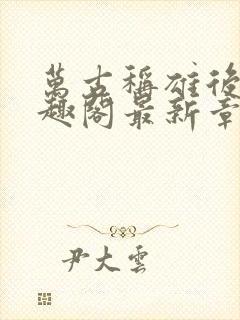 萬古稱雄後
趣閣最新章
尹大雲